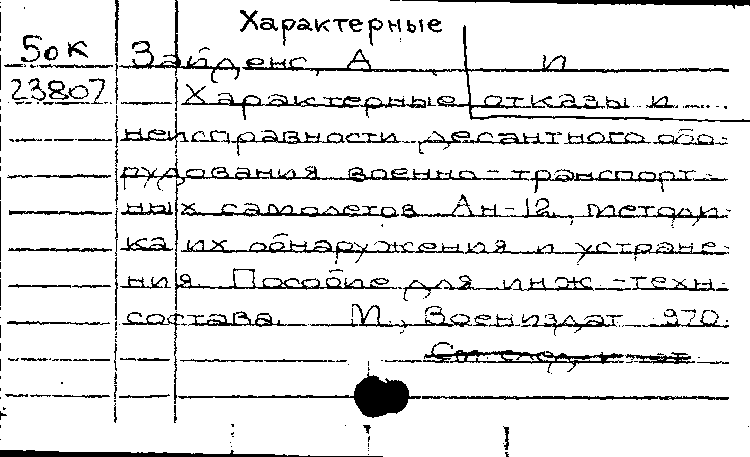 Характерные
50к Зайденс, А И
23807 Характерные отказы и ....
неисправности десантного обо-
рудования военно-транспорт-
ных самолетов Ан-12, методи-
ка их обнаружения и устране-
ния. Пособие для инж-техн.
состава. М., Воениздат 970.